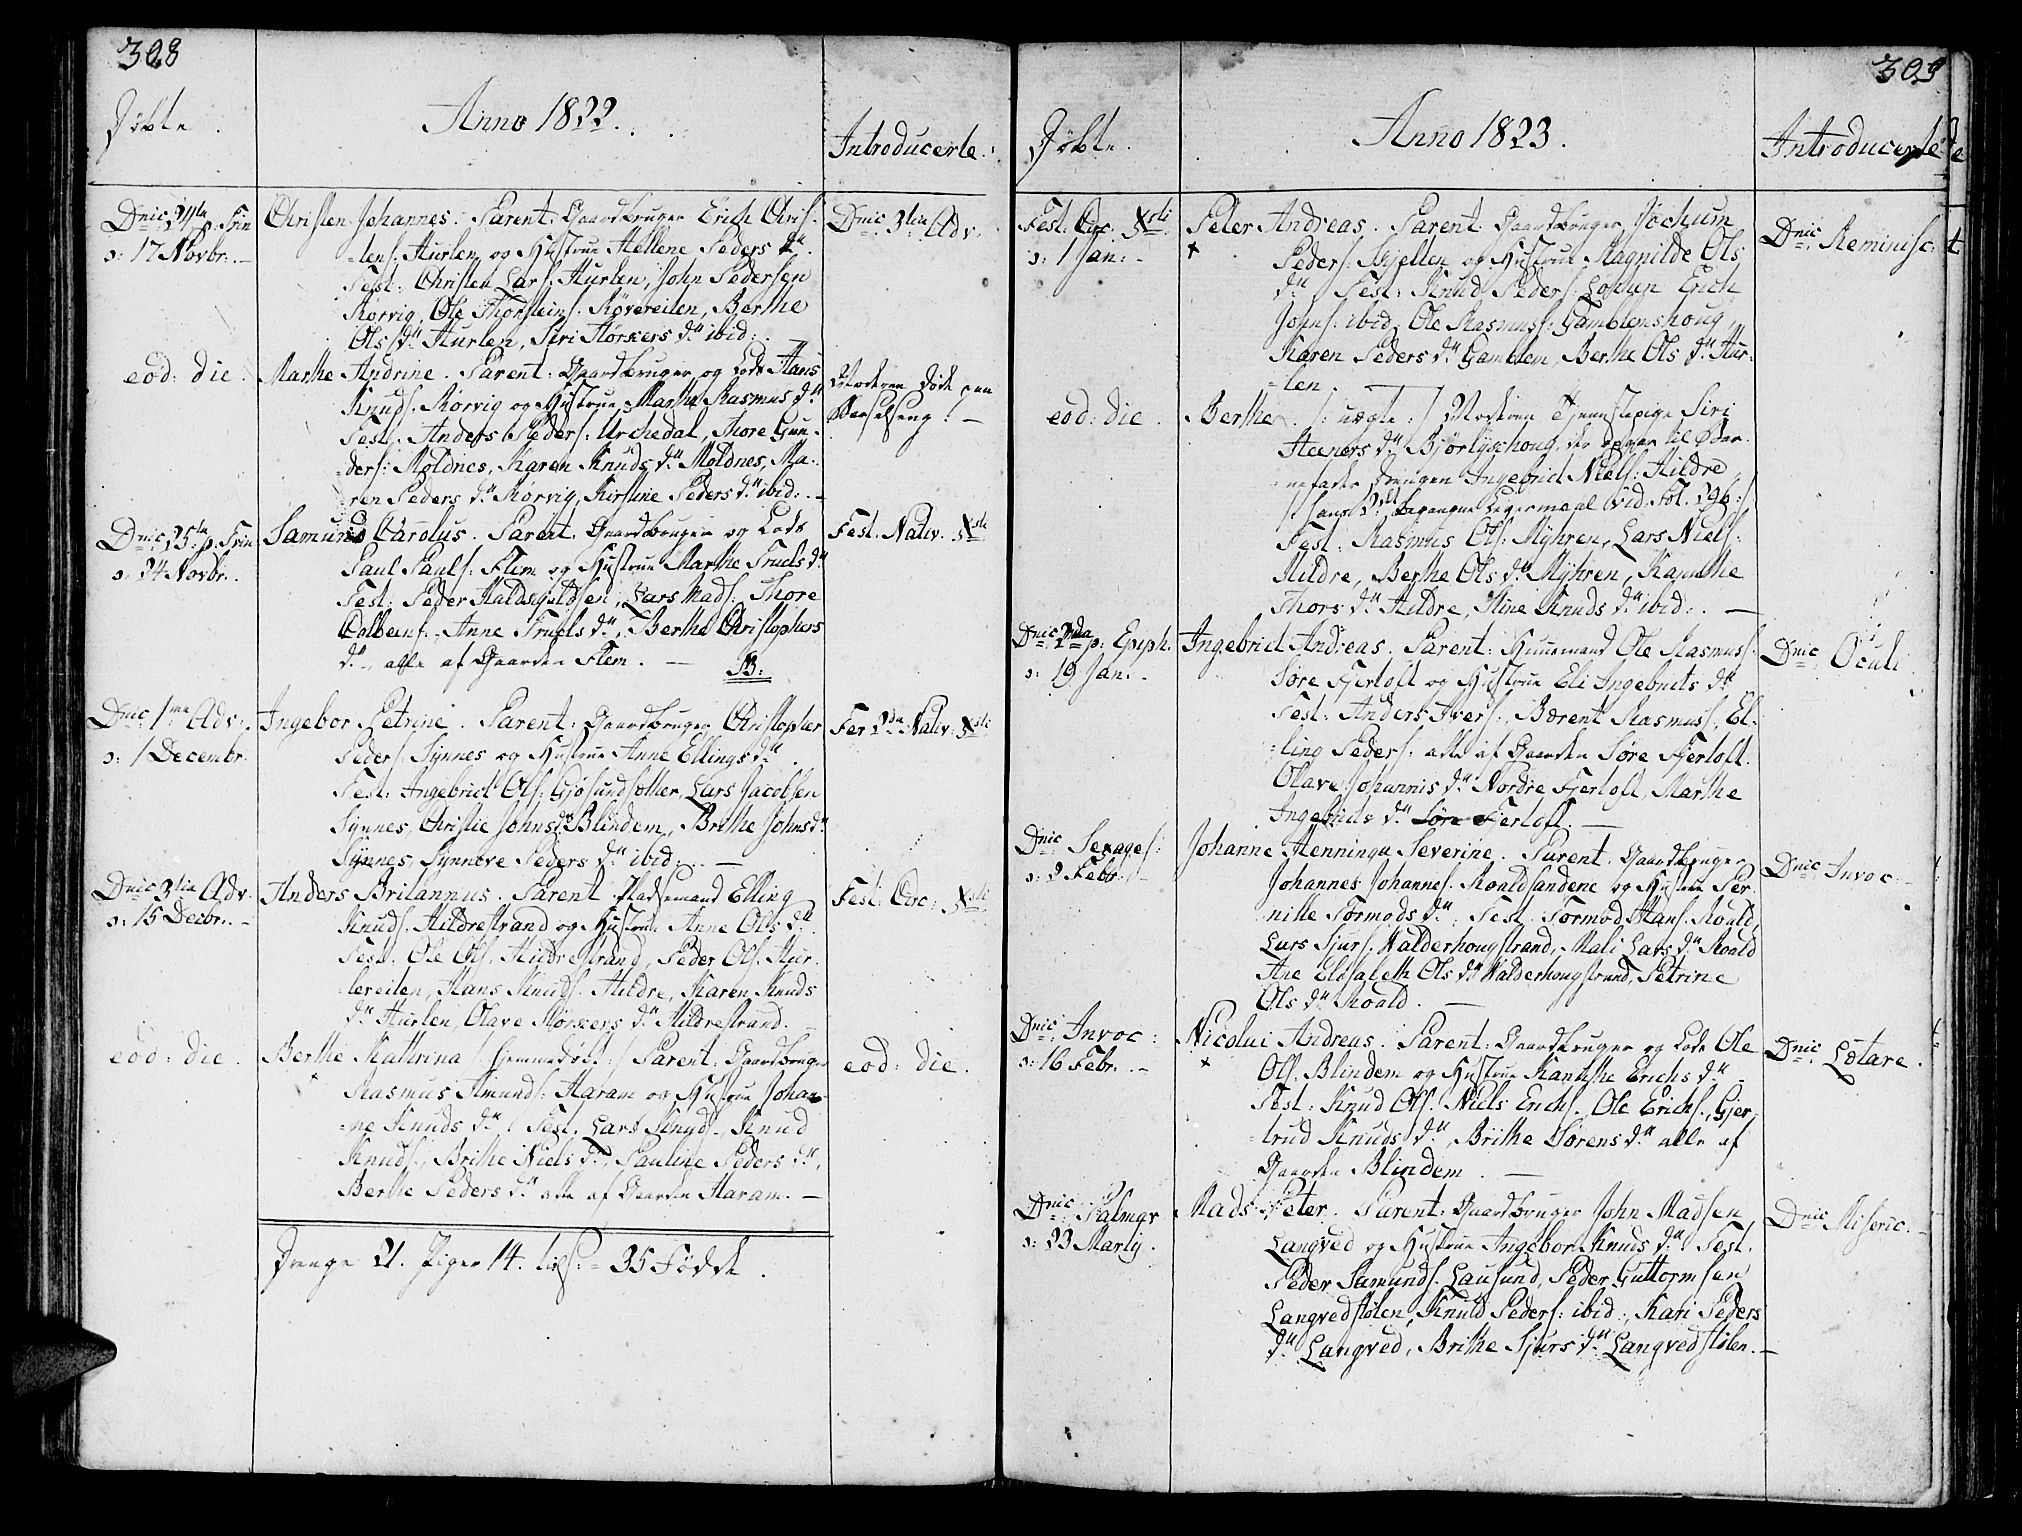 308
Døbte.
Anno 1822.
Introducerte.
Dnic. 24de p. Trin
ɔ: 17 Novbr. —
Christen Johannes. Parent: Gaardbruger Erich Chris-
tens: Hurlen og Hustrue Hellene Peders dtr
Test: Christen Lars: Hurlen, John Pedersen
Rørvig, Ole Thorsteins: Røvereiten, Berthe
Ols dtr Hurlen, Siri Størkers dtr ibid:
Dnic. 3tia Adv.
eod: die.
Marthe Andrine. Parent: Gaardbruger og Lods Hans
Knuds: Rørvig og Hustrue Marthe Rasmus dtr
Test: Anders Peders: Urchedal, Thore Gun-
ders: Moldnes, Karen Knuds dtr Moldnes, Ma-
ren Peders dtr Rørvig, Kirstine Peders dtr ibid: —
Moderen døde paa
Barselseng! —
Dnic. 25de p. Trin
ɔ: 24 Novbr.
Samund Carolus. Parent. Gaardbruger og Lods
Paul Pauls: Flem og Hustrue Marthe Truels dtr
Test: Peder Haldsgiildsen, Lars Mads:, Thore
Colbens:, Anne Truels dtr, Berthe Christophers
dtr alle af Gaarden Flem. —
NB:
Fest. Nativ. Xsti
Dnic. 1ma Adv:
ɔ: 1 Decembr.
Ingebor Petrine. Parent: Gaardbruger Christopher
Peders: Synnes og Hustrue Anne Ellings dtr
Test: Ingebrict Ols: Gjøsundsother, Lars Jacobsen
Synnes, Christie Johns dtr Blindem, Brithe Johns dtr
Synnes, Synneve Peders dtr ibid: —
Fer 2da Nativ: Xsti
Dnic. 3tia Adv.
ɔ: 15 Decbr. —
Anders Britannus. Parent Pladsemand Elling
Knuds: Hildrestrand og Hustrue Anne Ols dtr
Test. Ole Ols. Hildrestrand, Peder Ols. Hur-
lereiten, Hans Knuds. Hildre, Karen Knuds
dtr Hurlen, Olave Størkers dtr Hildrestrand.
Fest. Circ: Xsti
eod: die.
Berthe Kathrina /: hjemmedøbt :/ Parent: Gaardbruger
Rasmus Amunds: Haram og Hustrue Johan-
ne Knuds dtr. Test. Lars Knuds:, Knud
Knuds:, Brithe Niels dtr, Pauline Peders dtr,
Berthe Peders dtr alle af Gaarden Haram. —
eod: die.
Drenge 21. Piger 14. tils: = 35 Fødde.
309
Døbte.
Anno 1823.
Introducerte
Fest. Circ. Xsti
ɔ: 1 Jan: —
Peter Andreas. Parent. Gaardbruger Jochum
Peders: Skjellen og Hustrue Magnilde Ols
dtr. Test: Knud Peders: Løphun Erich
Johns: ibid, Ole Rasmus: Gamblemshoug,
Karen Peders dtr Gamblem, Berthe Ols dtr Hur-
len.
Dnic. Reminisc:
eod: die.
Berthe /: uægte :/ Moderen Tjenestepige Siri
Steeners dtr Bjørlyckhoug, der opgav til Barn-
nefader Drengen Ingebrict Niels: Hildre
/: hans 2det begangne Leiermaal Vid. Fol. 296 :/
Test: Rasmus Ols: Myhren, Lars Niels:
Hildre, Berthe Ols dtr Myhren, Kanuthe
Thors dtr Hildre, Stine Knuds dtr ibid: —
Dnic. 2da p: Epiph.
ɔ: 19 Jan. —
Ingebrict Andreas. Parent: Huusmand Ole Rasmus:
Søre Fjertoft og Hustrue Eli Ingebricts dtr
Test: Anders Ivers:, Bærent Rasmus:, El-
ling Peders: alle af Gaarden Søre Fjertoft.
Olave Johannis dtr Nordre Fjertoft, Marthe
Ingebricts dtr Søre Fjertoft. —
Dnic. Oculi
Dnic. Sexages:
ɔ: 2 Febr. —
Johanne Henninga Severine. Parent. Gaardbruger
Johannes Johannes: Roaldsandene og Hustrue Per-
nille Tormods dtr. Test. Tormod Hans: Roald,
Lars Sjurs: Valderhougstrand, Mali Lars dtr Roald
Ane Elisabeth Ols dtr Valderhougstrand, Petrine
Ols dtr Roald. —
Dnic. Invoc. —
Dnic. Invoc:
ɔ: 16 Febr. —
Nicolai Andreas. Parent: Gaardbruger og Lods Ole
Ols. Blindem og Hustrue Kanuthe Erichs dtr
Test: Knud Ols. Niels Erichs. Ole Erichs. Gjer-
trud Knuds dtr, Brithe Sørens dtr alle af
Gaarden Blindem. —
Dnic. Lætare.
Dnic. Palmar
ɔ: 23 Martij.
Mads Peter. Parent: Gaardbruger John Madsen
Langved og Hustrue Ingebor Knuds dtr. Test.
Peder Samunds. Lausund, Peder Guttormsen
Langvedstølen, Knuld Peders: ibid:, Kari Peders
dtr Langved, Brithe Sjurs dtr Langvedstølen. —
Dnic. Miseric. —